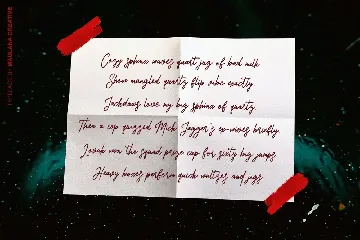 TYPEFACE BY MAULANA CREATIVE
Cozy sphinx waves quart jug of bad milk
Show mangled quartz flip vibe exactly
Jackdaws love my big sphinx of quartz
Then a cop quizzed Mick Jagger's ex-wives briefly
Jovial won the squad prize cup for sixty big jumps
Heavy boxes perform quick waltzes and jigs